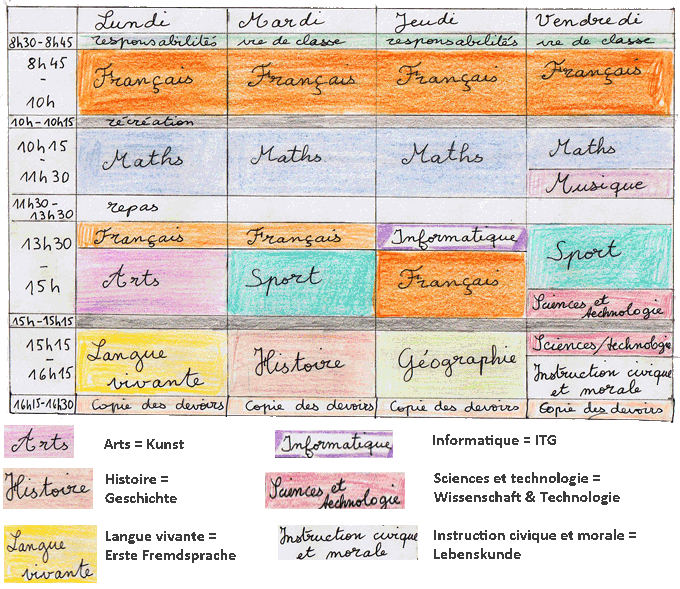 Lundi Mardi Jeudi Vendredi
8h30-8h45 responsabilités vie de classe responsabilités vie de classe
8h45
-
10h
Français Français Français Français
10h-10h15 récréation
10h15
-
11h30
Maths Maths Maths Maths
Musique
11h30-
13h30
repas
13h30
-
15h
Français Français Informatique Sport
Arts Sport Français
Sciences et
technologie
15h-15h15
15h15
-
16h15
Langue
vivante
Histoire Géographie Sciences/technologie
Instruction civique
et morale
16h15-16h30 Copie des devoirs Copie des devoirs Copie des devoirs Copie des devoirs
Arts Arts = Kunst
Informatique Informatique = ITG
Histoire Histoire =
Geschichte
Sciences et
technologie
Sciences et technologie =
Wissenschaft & Technologie
Langue
vivante
Langue vivante =
Erste Fremdsprache
Instruction civique
et morale
Instruction civique et morale =
Lebenskunde